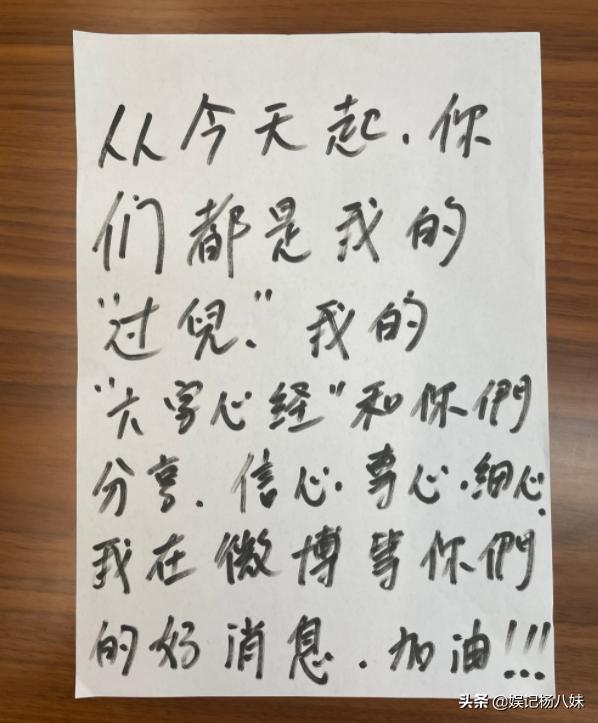 从今天起.你
们都是我的
“过兒.”我的
“六字心经”和你們
分享.信心.專心.细心.
我在微博等你們
的好消息.加油!!!
头条 @娱记杨八妹